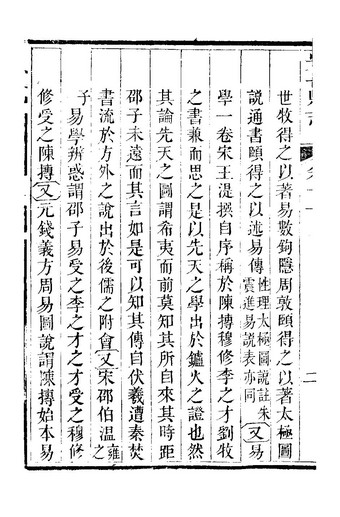 世牧得之以著易數鉤隱周敦頤得之以著太極圖
說通書頤得之以述易傳性理太極圖說註朱震進易說表亦同又易
學一卷宋王湜撰自序稱於陳摶穆修李之才劉牧
之書兼而思之是以先天之學出於鑪火之證也然
其論先天之圖謂希夷而前莫知其所自來其時距
邵子未遠而其言如是可以知其傳自伏羲遭秦焚
書流於方外之說出於後儒之附會又宋邵伯溫雍
子易學辨惑謂邵子易受之李之才之才受之穆修
修受之陳摶又元錢義方周易圖說謂陳摶始本易